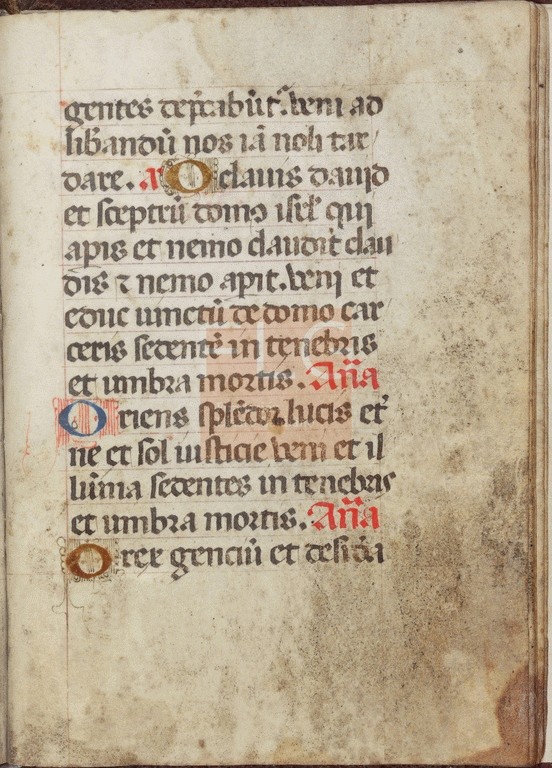 gentes dep̄cabūt᷑. veni ad
libandū nos iā noli tar
dare. a O clauis dauid
et sceptrū domꝰ isrl̄ qui
apis et nemo claudit clau
dis ⁊ nemo apit. veni et
educ uinctū de domo car
ceris sedentē in tenebris
et umbra mortis. Aña
Oriens splēdor lucis et᷑
ne et sol iusticie veni et il
lumīa sedentes in tenebris
et umbra mortis. Aña
O rex genciū et